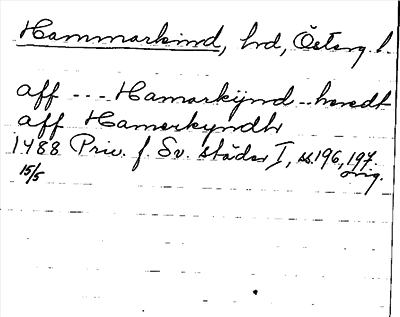 Hammarkind, hd, Österg. l.
aff --- Hamarkijnd--heredt
aff Hamerkyndh
1488 Priv. f. Sv. städer I, ss. 196, 197.
15/5 orig.